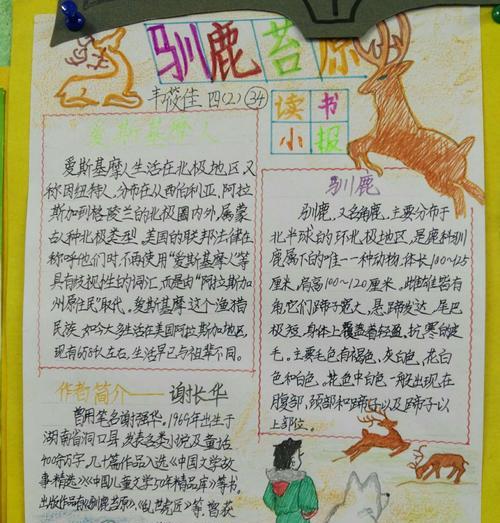 驯鹿苔原
丰筱佳 四(2) 34
读书
小报
爱斯基摩人
爱斯基摩人生活在北极地区,又
称因纽特人,分布在从西伯利亚,阿拉
斯加到格陵兰的北极圈内外,属蒙
古人种北极类型,美国的联邦法律在
称呼他们时,不再使用"爱斯基摩人"等
具有歧视性的词汇,而是由"阿拉斯加
州原住民"取代。爱斯基摩这个渔猎
民族,如今大多生活在美国阿拉斯加地区,
现有6.5万人左右,生活早已与祖辈不同。
驯鹿
驯鹿,又名角鹿。主要分布于
北半球的环北极地区,是鹿科驯
鹿属下的唯一一种动物。体长100~125
厘米,肩高100~120厘米,雌雄皆有
角,它们蹄子宽大,悬蹄发达,尾巴
极短,身体上覆盖着轻盈,抗寒的皮
毛。主要毛色有褐色,灰白色,花白
色和白色。花鱼中白色一般出现在
腹部,颈部和蹄子以及蹄子以
上部位。
作者简介——谢长华
曾用笔名谢强华。1969年出生于
湖南省洞口县,发表各类小说及童话
400余万字,几十篇作品入选《中国文学故
事精选》《中国儿童文学50年精品库》等书。
出版作品有《驯鹿苔原》、《乱世虎匠》等,曾获